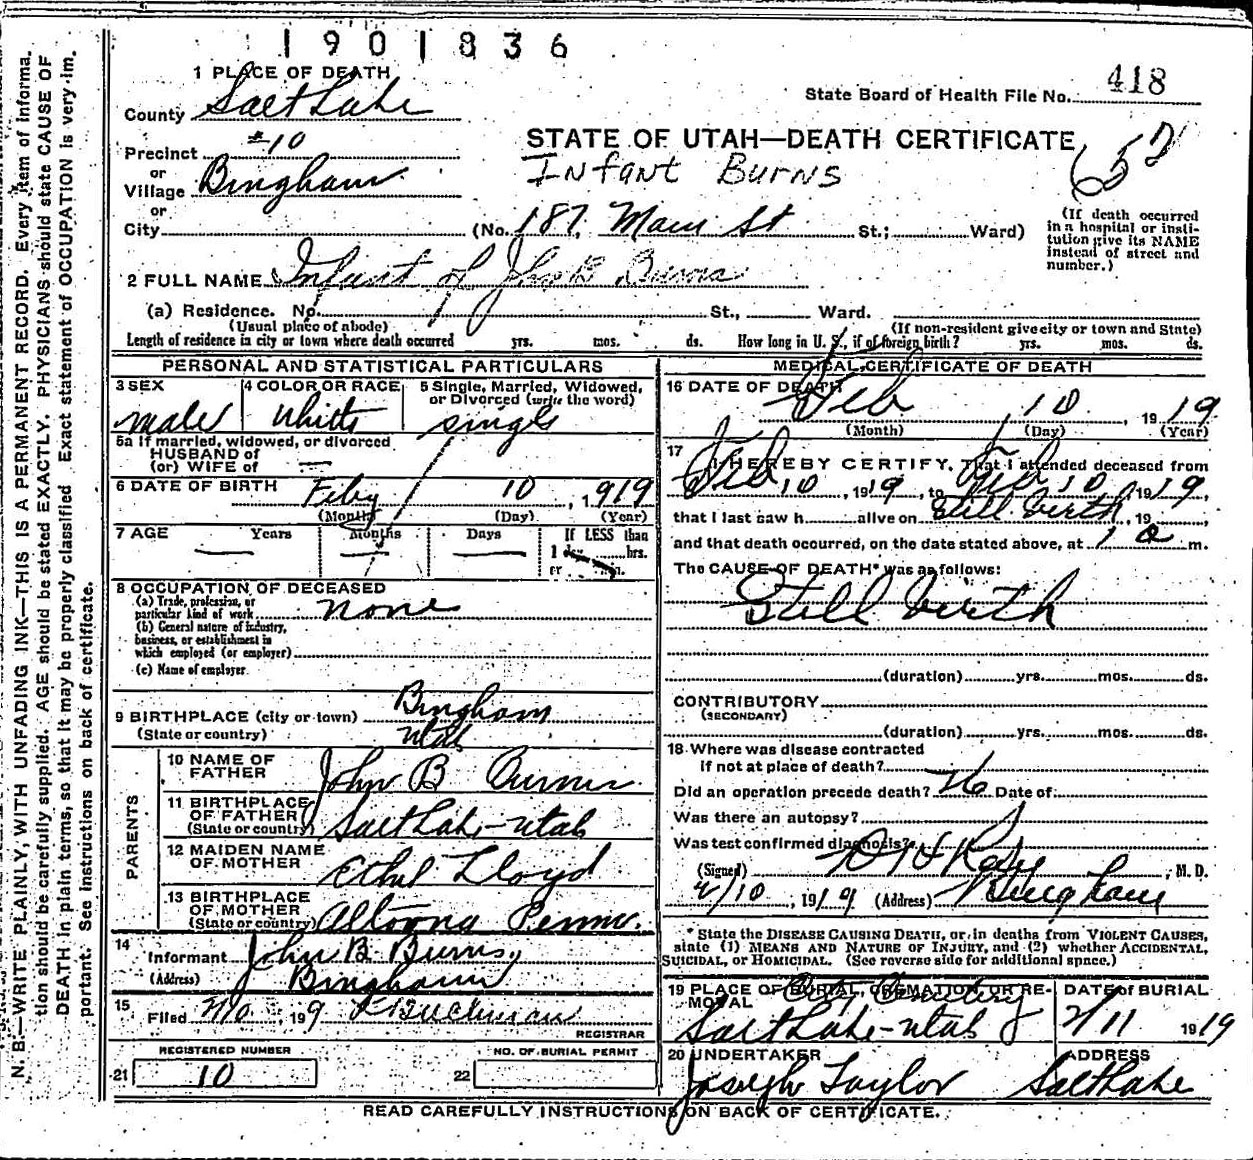 1901836
1 PLACE OF DEATH
County Salt Lake
State Board of Health File No. 418
Precinct #10
STATE OF UTAH—DEATH CERTIFICATE
or
Village Bingham
Infant Burns
or
City (No. 187, Main St St.; Ward)
(If death occurred in a hospital or insti-
tution give its NAME
instead of street and
number.)
2 FULL NAME Infant of Jno B Burns
(a) Residence. No. St., Ward.
(Usual place of abode) (If non-resident give city or town and State)
Length of residence in city or town where death occurred yrs. mos. ds. How long in U. S., if of foreign birth? yrs. mos. ds.
PERSONAL AND STATISTICAL PARTICULARS
3 SEX male
4 COLOR OR RACE White
5 Single, Married, Widowed,
or Divorced (write the word)
single
5a If married, widowed, or divorced
HUSBAND of
(or) WIFE of —
6 DATE OF BIRTH Feby 10, 1919
(Month) (Day) (Year)
7 AGE Years Months Days If LESS than
1 day, hrs.
or min.
8 OCCUPATION OF DECEASED
(a) Trade, profession, or
particular kind of work none
(b) General nature of industry,
business, or establishment in
which employed (or employer)
(c) Name of employer
9 BIRTHPLACE (city or town) Bingham
(State or country) Utah
PARENTS
10 NAME OF
FATHER John B Burns
11 BIRTHPLACE
OF FATHER
(State or country) Salt Lake-Utah
12 MAIDEN NAME
OF MOTHER Ethel Lloyd
13 BIRTHPLACE
OF MOTHER
(State or country) Altoona Penna.
14
Informant John B Burns,
(Address) Bingham
15
Filed 2/10, 1919
REGISTRAR
REGISTERED NUMBER
21 10
NO. OF BURIAL PERMIT
22
MEDICAL CERTIFICATE OF DEATH
16 DATE OF DEATH
Feb 10, 1919
(Month) (Day) (Year)
17
I HEREBY CERTIFY, That I attended deceased from
Feb 10, 1919, to Feb 10, 1919,
that I last saw h alive on Still birth, 19 ,
and that death occurred, on the date stated above, at 1 a m.
The CAUSE OF DEATH* was as follows:
Still birth
(duration) yrs. mos. ds.
CONTRIBUTORY
(SECONDARY)
(duration) yrs. mos. ds.
18 Where was disease contracted
if not at place of death?
Did an operation precede death? No Date of:
Was there an autopsy?
Was test confirmed diagnosis?
(Signed) , M. D.
2/10, 1919 (Address) Bingham
* State the DISEASE CAUSING DEATH, or in deaths from VIOLENT CAUSES,
state (1) MEANS AND NATURE OF INJURY, and (2) whether ACCIDENTAL,
SUICIDAL, or HOMICIDAL. (See reverse side for additional space.)
19 PLACE OF BURIAL, CREMATION, OR RE-
MOVAL City Cemetery
Salt Lake-Utah
DATE of BURIAL
2/11 1919
20 UNDERTAKER
Joseph Taylor
ADDRESS
Salt Lake
READ CAREFULLY INSTRUCTIONS ON BACK OF CERTIFICATE.
N. B.—WRITE PLAINLY, WITH UNFADING INK—THIS IS A PERMANENT RECORD. Every item of informa-
tion should be carefully supplied. AGE should be stated EXACTLY. PHYSICIANS should state CAUSE OF
DEATH in plain terms, so that it may be properly classified. Exact statement of OCCUPATION is very im-
portant. See instructions on back of certificate.